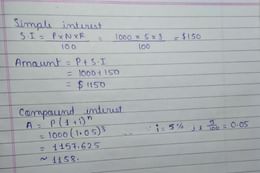 Simple interest
S.I = P×N×R/100 = 1000×5×3/100 = $150
Amount = P+S.I
= 1000+150
= $1150
Compound interest
A = P(1+i)^n
= 1000(1.05)^3 ∵ i = 5% 5/100 = 0.05
= 1157.625
~ 1158.